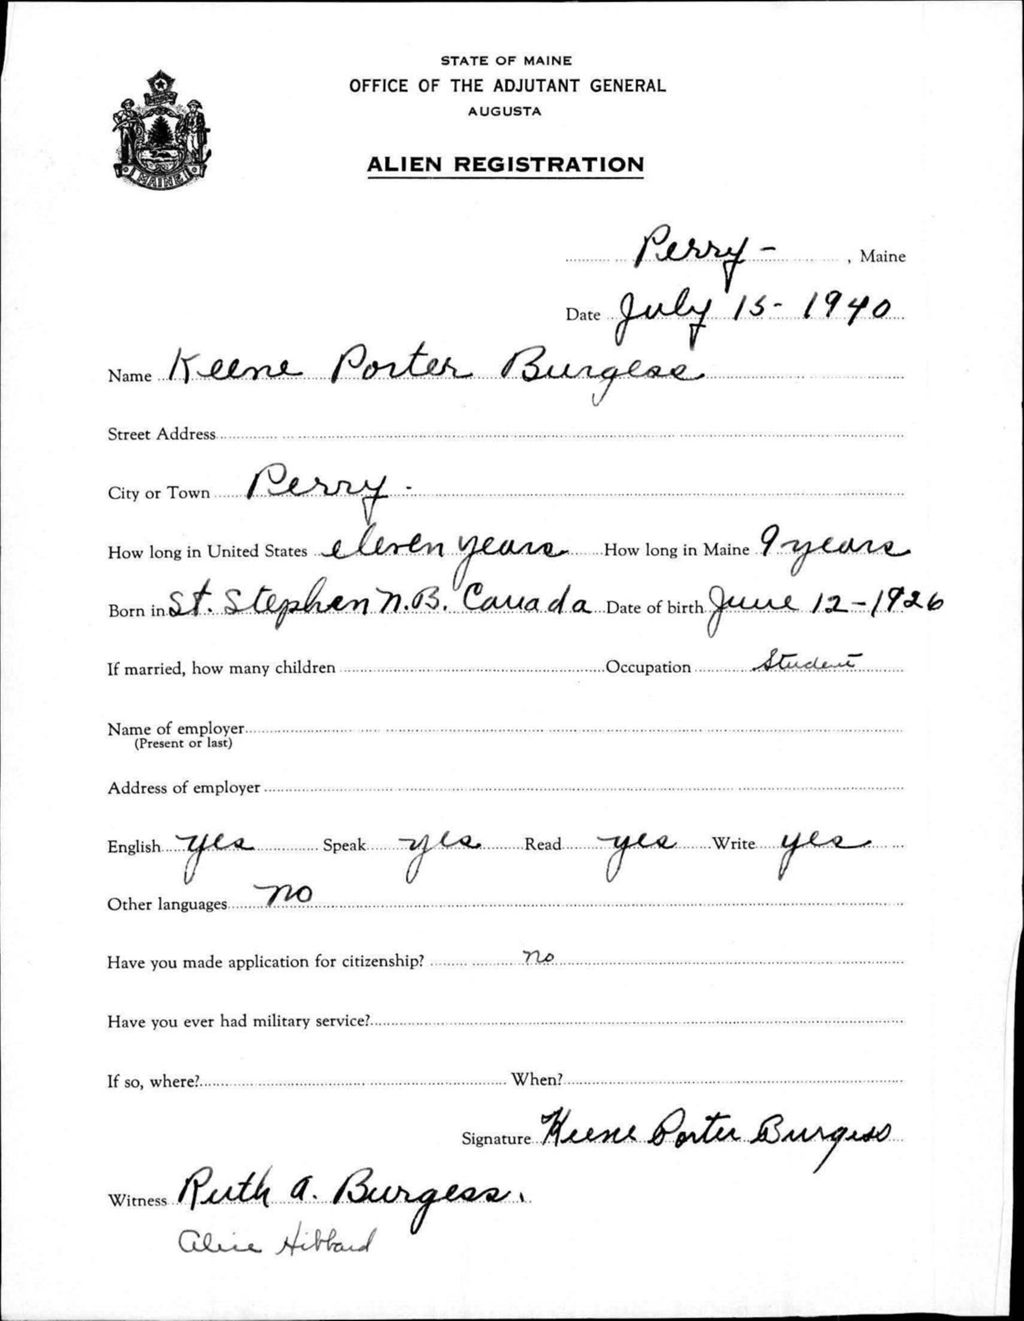 STATE OF MAINE
OFFICE OF THE ADJUTANT GENERAL
AUGUSTA
ALIEN REGISTRATION
MAINE
Perry - , Maine
Date July 15 - 1940
Name Keene Porter Burgess
Street Address
City or Town Perry -
How long in United States eleven years How long in Maine 9 years
Born in St. Stephen N.B. Canada Date of birth June 12 - 1926
If married, how many children Occupation Student
Name of employer
(Present or last)
Address of employer
English yes Speak yes Read yes Write yes
Other languages no
Have you made application for citizenship? no
Have you ever had military service?
If so, where? When?
Signature Keene Porter Burgess
Witness Ruth A. Burgess.
Alice Hibbard